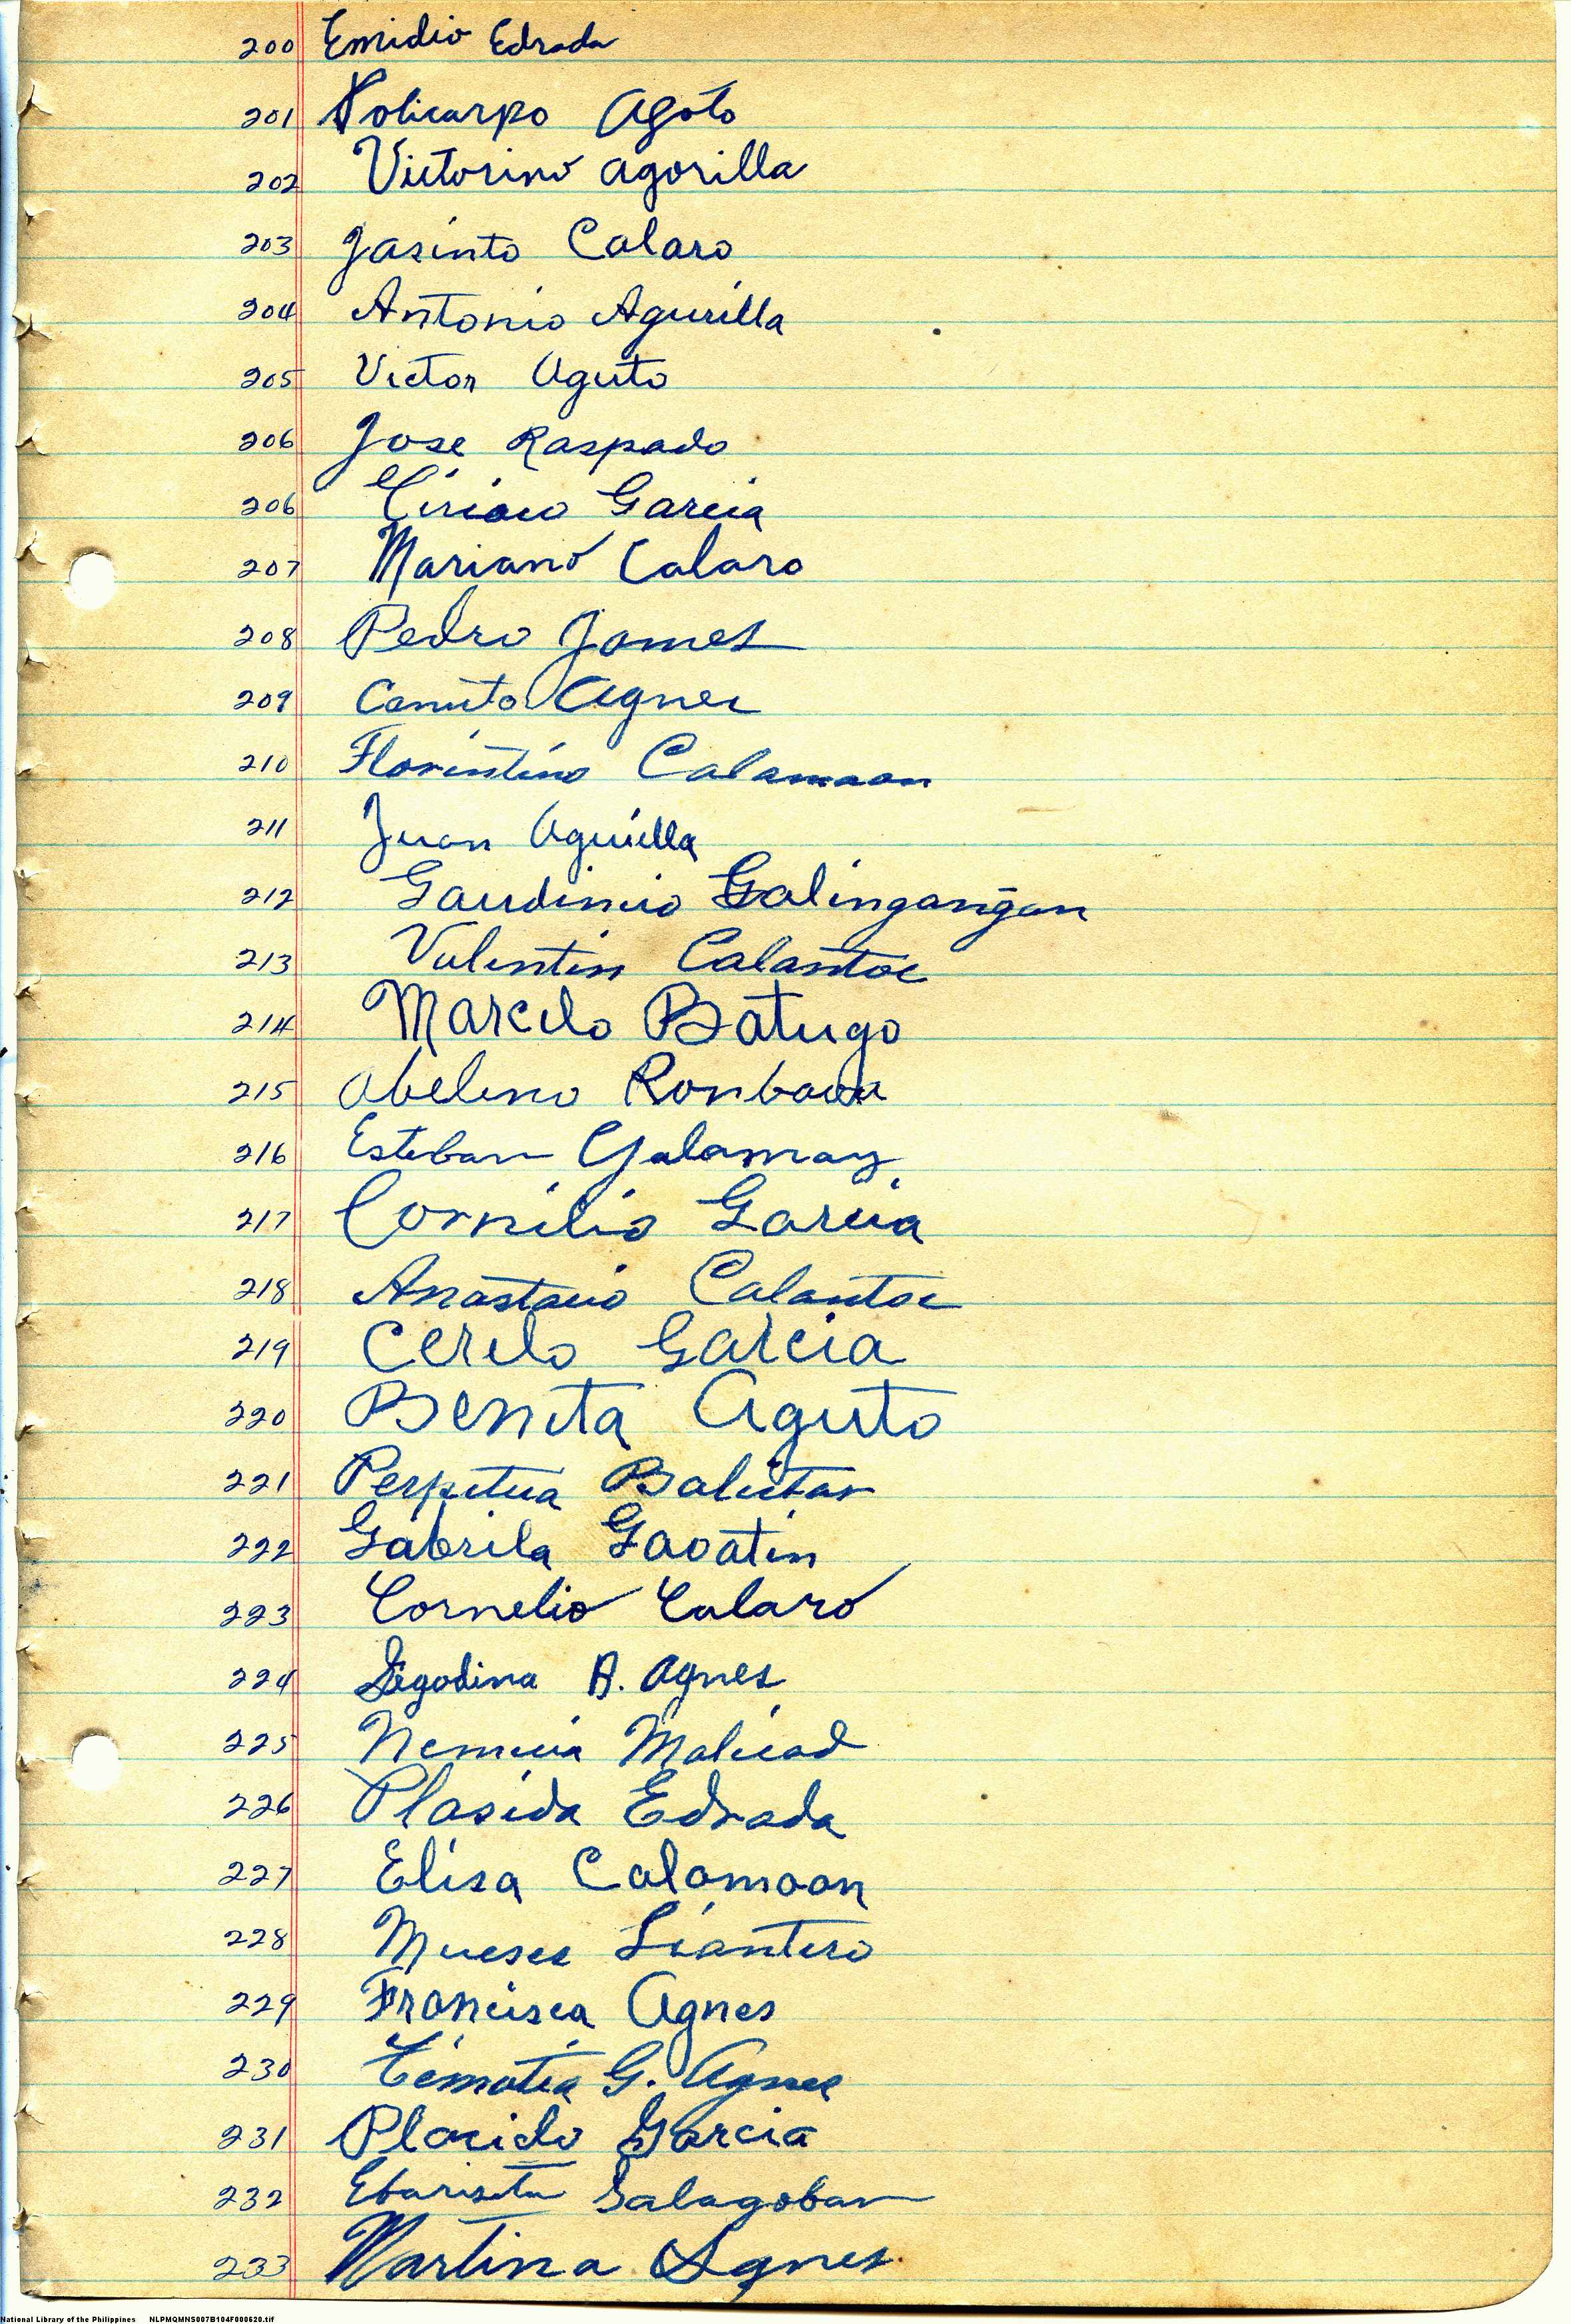 200 Emidio Edrada
201 Policarpo Agoto
202 Victorino Agorilla
203 Jasinto Calaro
204 Antonio Agurilla
205 Victor Aguto
206 Jose Raspado
206 Ciriaco Garcia
207 Mariano Calaro
208 Pedro James
209 Canuto Agnes
210 Florintino Calamaan
211 Juan Aguiella
212 Gaudincio Galingangan
213 Valintin Calantoc
214 Marcelo Batugo
215 Abelino
216 Esteban Galamay
217 Cornilio Garcia
218 Anastacio Calantoc
219 Cerelo Garcia
220 Benita Aguto
221 Perpetua Balictar
222 Gabrila Gavatin
223 Cornelio Calaro
224 Segodina A. Agnes
225 Nemicia Malicad
226 Plasida Edrada
227 Elisa Calamaan
228 Mueses Siantero
229 Francisca Agnes
230 Timotea G. Agnes
231 Placido Garcia
232 Ebarista Salagoban
233 Martina Agnes
National Library of the Philippines NLPMQMNS007B104F000620.tif